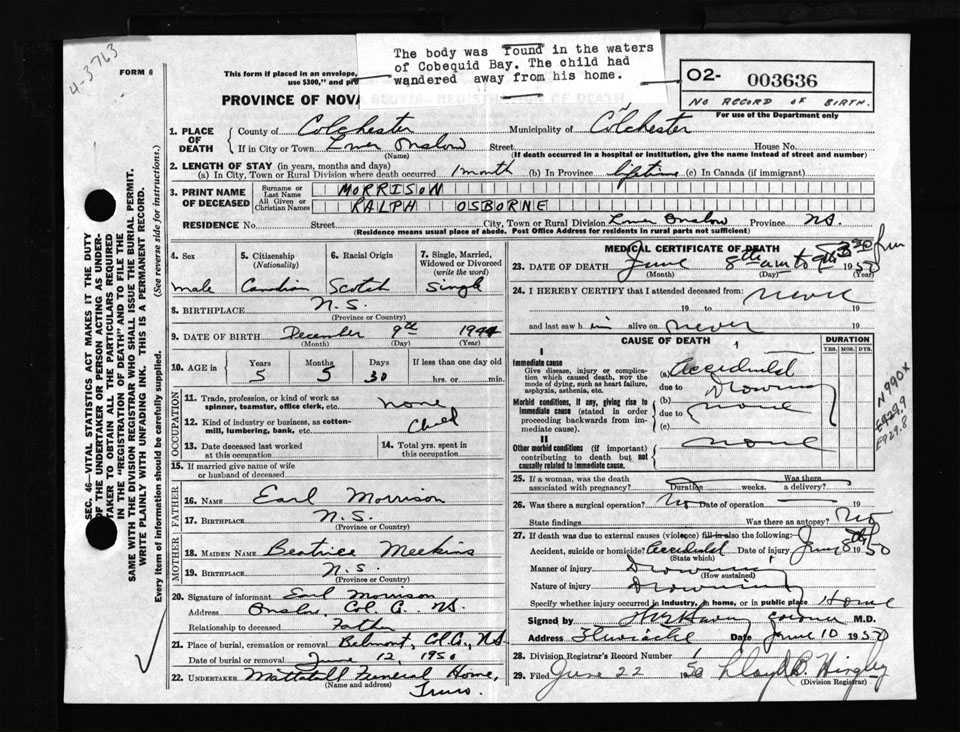 4-3763
FORM 6
The body was found in the waters
of Cobequid Bay. The child had
wandered away from his home.
This form if placed in an envelope,
use $300," and
PROVINCE OF NOVA
O2- 003636
NO RECORD OF BIRTH.
For use of the Department only
SEC. 46—VITAL STATISTICS ACT MAKES IT THE DUTY
OF THE UNDERTAKER OR PERSON ACTING AS UNDER-
TAKER TO OBTAIN ALL THE PARTICULARS REQUIRED
IN THE "REGISTRATION OF DEATH" AND TO FILE THE
SAME WITH THE DIVISION REGISTRAR WHO SHALL ISSUE THE BURIAL PERMIT.
WRITE PLAINLY WITH UNFADING INK. THIS IS A PERMANENT RECORD.
Every item of information should be carefully supplied. (See reverse side for instructions.)
1. PLACE OF DEATH County of Colchester Municipality of Colchester
If in City or Town Lower Onslow Street House No.
(Name) (If death occurred in a hospital or institution, give the name instead of street and number)
2. LENGTH OF STAY (in years, months and days)
(a) In City, Town or Rural Division where death occurred 1 month (b) In Province lifetime (c) In Canada (if immigrant)
3. PRINT NAME OF DECEASED Surname or Last Name MORRISON
All Given or Christian Names RALPH OSBORNE
RESIDENCE No. Street City, Town or Rural Division Lower Onslow Province N.S.
(Residence means usual place of abode. Post Office Address for residents in rural parts not sufficient)
4. Sex male
5. Citizenship (Nationality) Canadian
6. Racial Origin Scotch
7. Single, Married, Widowed or Divorced (write the word) Single
8. BIRTHPLACE N.S.
(Province or Country)
9. DATE OF BIRTH December 9th 1944
(Month) (Day) (Year)
10. AGE in Years 5 Months 5 Days 30 If less than one day old hrs. or min.
OCCUPATION
11. Trade, profession, or kind of work as spinner, teamster, office clerk, etc. none
12. Kind of industry or business, as cotton-mill, lumbering, bank, etc. Child
13. Date deceased last worked at this occupation
14. Total yrs. spent in this occupation
15. If married give name of wife or husband of deceased
FATHER
16. NAME Earl Morrison
17. BIRTHPLACE N.S.
(Province or Country)
MOTHER
18. MAIDEN NAME Beatrice Meekins
19. BIRTHPLACE N.S.
(Province or Country)
20. Signature of informant Earl Morrison
Address Onslow, Col. Co. N.S.
Relationship to deceased Father
21. Place of burial, cremation or removal Belmont, Col. Co., N.S.
Date of burial or removal June 12, 1950
22. UNDERTAKER Mattatall Funeral Home,
(Name and address) Truro.
MEDICAL CERTIFICATE OF DEATH
23. DATE OF DEATH June 8th 1950
(Month) (Day) (Year)
24. I HEREBY CERTIFY that I attended deceased from: never
19 to 19
and last saw him alive on never 19
CAUSE OF DEATH DURATION
YRS. MOS. DYS.
I
Immediate cause
Give disease, injury or complication which caused death, not the mode of dying, such as heart failure, asphyxia, asthenia, etc.
(a) Accidental
due to Drowning
Morbid conditions, if any, giving rise to immediate cause (stated in order proceeding backwards from immediate cause).
(b)
due to none
(c)
II
Other morbid conditions (if important) contributing to death but not causally related to immediate cause. none
N990X
E929.9
E929.8
25. If a woman, was the death associated with pregnancy? Duration weeks. Was there a delivery?
26. Was there a surgical operation? No Date of operation 19
State findings Was there an autopsy? No
27. If death was due to external causes (violence) fill in also the following:
Accident, suicide or homicide? Accidental Date of injury June 8th 1950
(State which)
Manner of injury Drowning
(How sustained)
Nature of injury Drowning
Specify whether injury occurred in industry, in home, or in public place Home
Signed by coroner M.D.
Address Date June 10 1950
28. Division Registrar's Record Number 1
29. Filed June 22 1950 Lloyd B. Hingley
(Division Registrar)